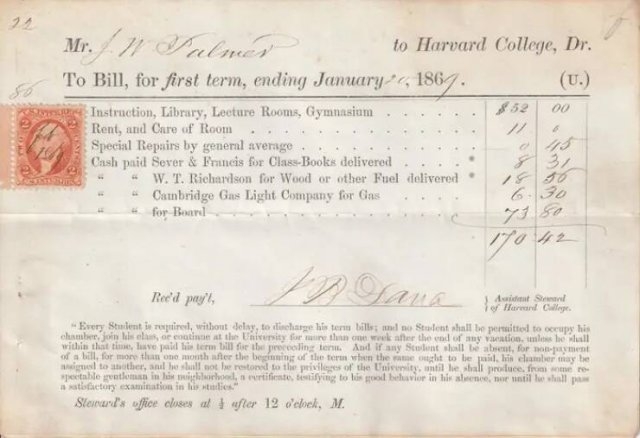 22
Mr. J W Palmer to Harvard College, Dr.
To Bill, for first term, ending January 20, 1869. (U.)
86
Instruction, Library, Lecture Rooms, Gymnasium . . . . . . . $52 00
Rent, and Care of Room . . . . . . . . . . . . 11 0
Special Repairs by general average . . . . . . . . . . 0 45
Cash paid Sever & Francis for Class-Books delivered . . . . 8 31
" " W. T. Richardson for Wood or other Fuel delivered 18 56
" " Cambridge Gas Light Company for Gas . . . . 6 30
" " for Board . . . . . . . . . . . . . 73 80
170 42
Rec'd pay't, J B Dana } Assistant Steward
of Harvard College.
"Every Student is required, without delay, to discharge his term bills; and no Student shall be permitted to occupy his
chamber, join his class, or continue at the University for more than one week after the end of any vacation, unless he shall
within that time, have paid his term bill for the preceeding term. And if any Student shall be absent, for non-payment
of a bill, for more than one month after the beginning of the term when the same ought to be paid, his chamber may be
assigned to another, and he shall not be restored to the privileges of the University, until he shall produce, from some re-
spectable gentleman in his neighborhood, a certificate, testifying to his good behavior in his absence, nor until he shall pass
a satisfactory examination in his studies."
Steward's office closes at ½ after 12 o'clock, M.